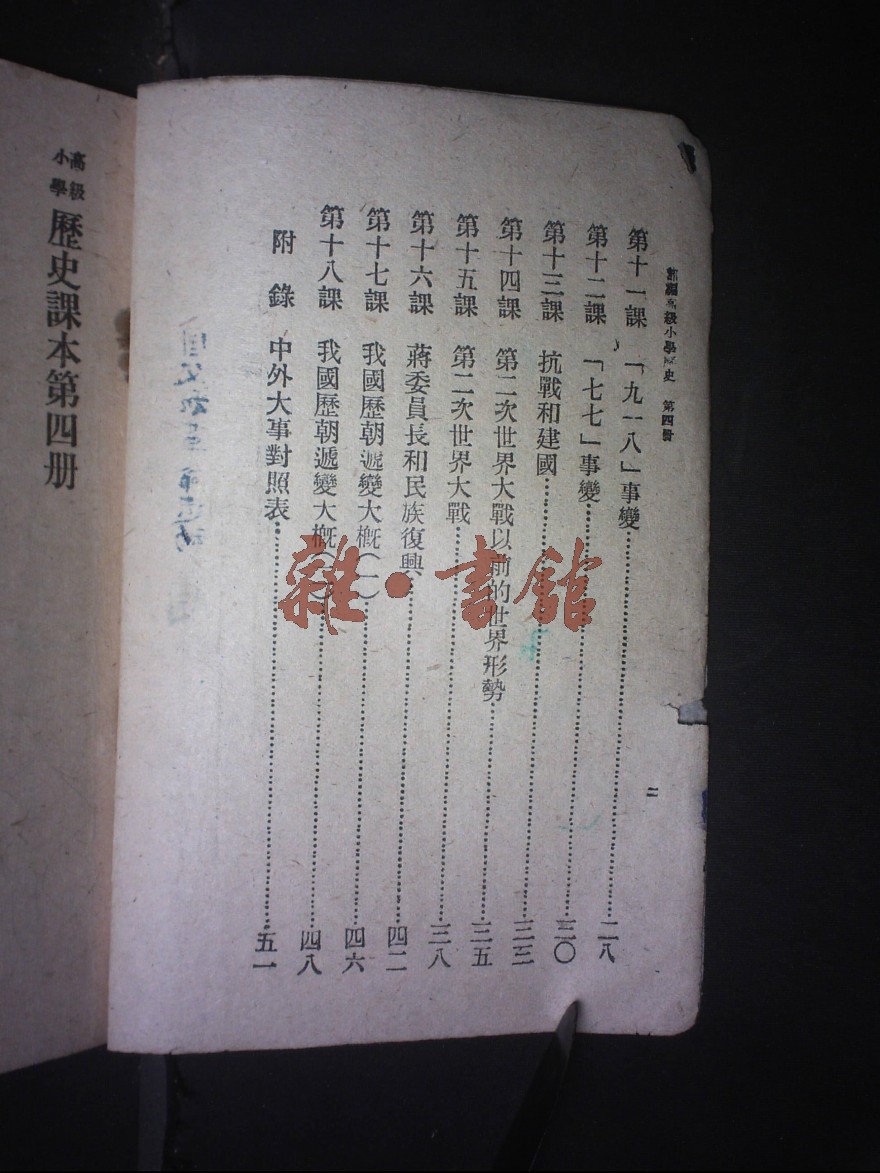 初級高級小學歷史 第四冊
二
第十一課 「九一八」事變……二八
第十二課 「七七」事變……三〇
第十三課 抗戰和建國……三三
第十四課 第二次世界大戰以前的世界形勢……三五
第十五課 第二次世界大戰……三八
第十六課 蔣委員長和民族復興……四二
第十七課 我國歷朝遞變大概(一)……四六
第十八課 我國歷朝遞變大概(二)……四八
附錄 中外大事對照表……五一
高級小學 歷史課本第四册
雜·書館